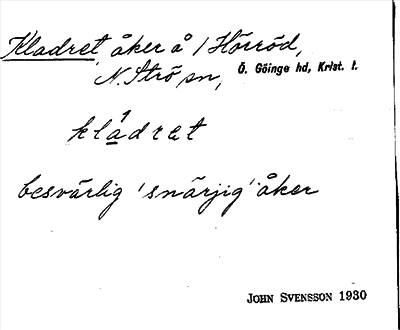 Kladret åker å 1 Hörröd,
N. Strö sn, Ö. Göinge hd, Krist. l.
kládret
besvärlig 'snärjig' åker
JOHN SVENSSON 1930